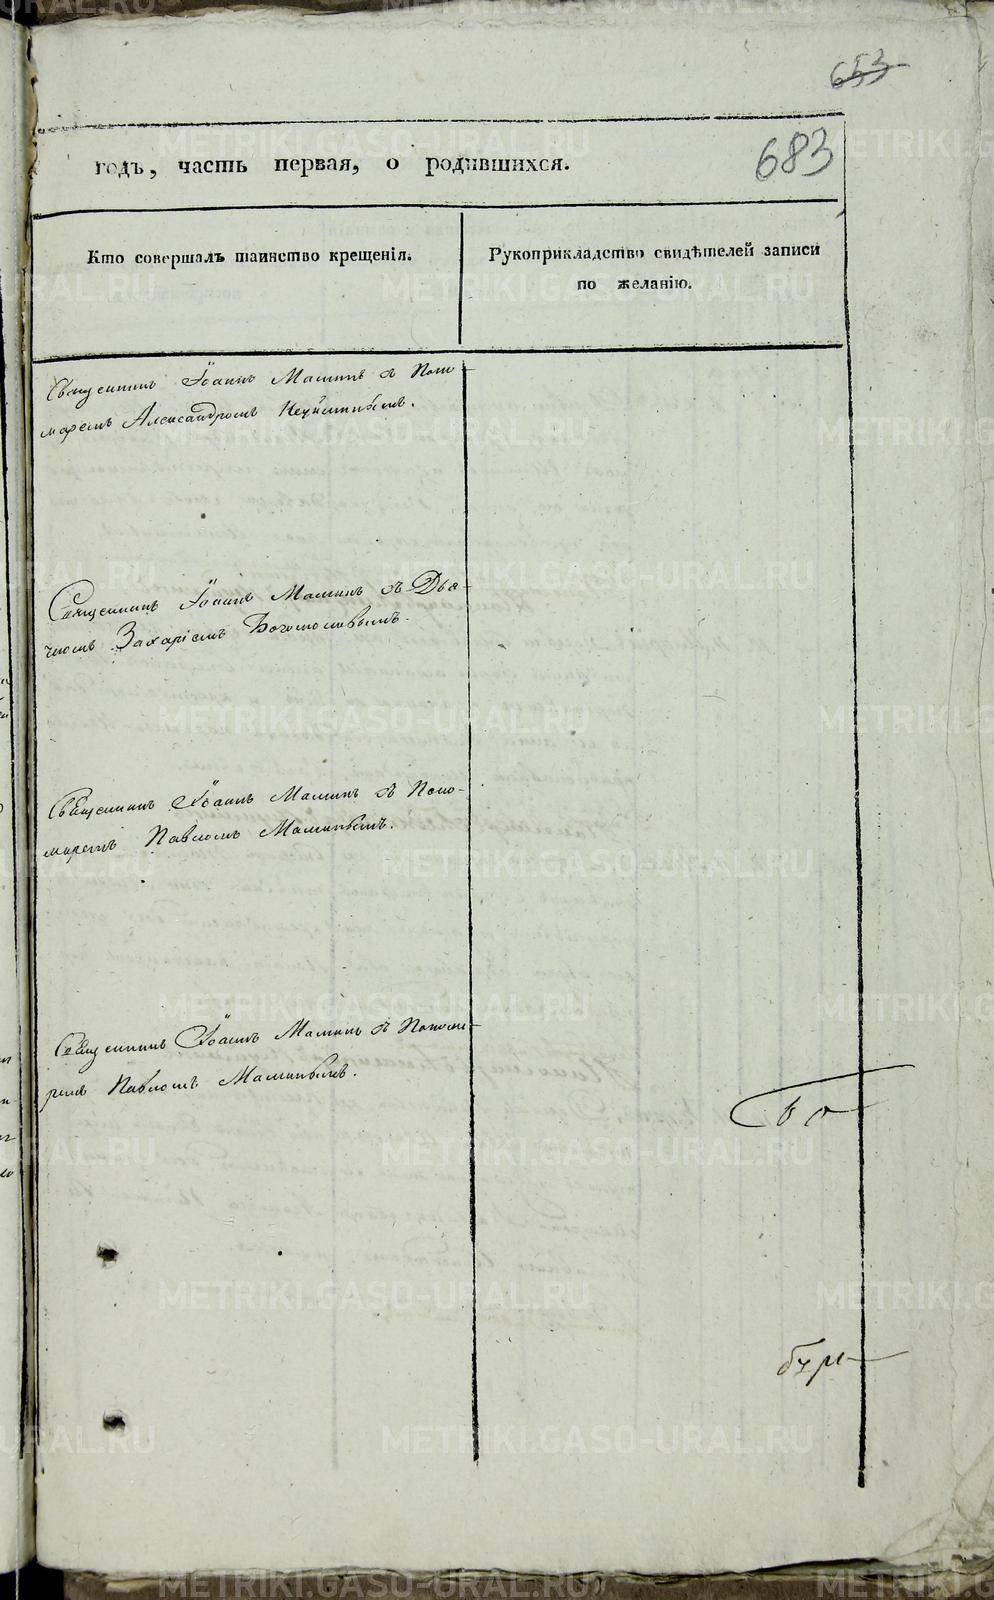 653
683
годъ, часть первая, о родившихся.
Кто совершалъ таинство крещенія.
Рукоприкладство свидѣтелей записи
по желанію.
Священникъ Іоаннъ Маминъ съ Поно-
маремъ Александромъ
Священникъ Іоаннъ Маминъ съ Дья-
чкомъ Захаріемъ Богомоловымъ.
Священникъ Іоаннъ Маминъ съ Поно-
маремъ Павломъ Маминымъ.
Священникъ Іоаннъ Маминъ съ Понома-
ремъ Павломъ Маминымъ.
METRIKI.GASO-URAL.RU